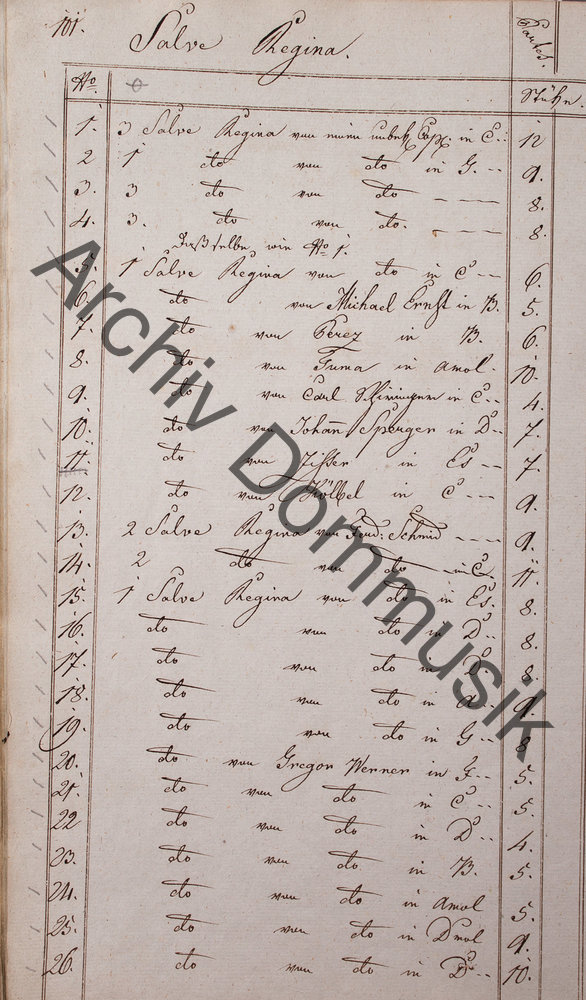 101.
Salve Regina.
Partes.
No. Stühe.
1. 3 Salve Regina von einem unbek. Cop. in C.. 12
2 1 do von do in G.-- 9.
3. 3 do von do ---- 8.
4. 3. do von do. ---- 8.
Dasselbe wie No 1.
5. 1 Salve Regina von do in C -- 6.
6. do von Michael Ernst in B. 5.
7. do von Perez in B. 6.
8. do von Tuma in Amol. 10.
9. do von Carl in C.. 4.
10. do von Johann Sperger in D.. 7.
11. do von in Es -- 7.
12. do von Kölbel in C --- 9.
13. 2 Salve Regina von Ferd: Schmid ---- 9.
14. 2 do von do in C. 11.
15. 1 Salve Regina von do in Es. 8.
16. do von do in D.. 8.
17. do von do in D. 8.
18. do von do in A.. 9.
19. do von do in G -- 8
20. do von Gregor Werner in F.. 5.
21. do von do in C.. 5.
22 do von do in D.. 4.
23. do von do in B. 5.
24. do von do in Amol 5.
25. do von do in Dmol 9.
26. do von do in D.. 10.
Archiv Dommusik